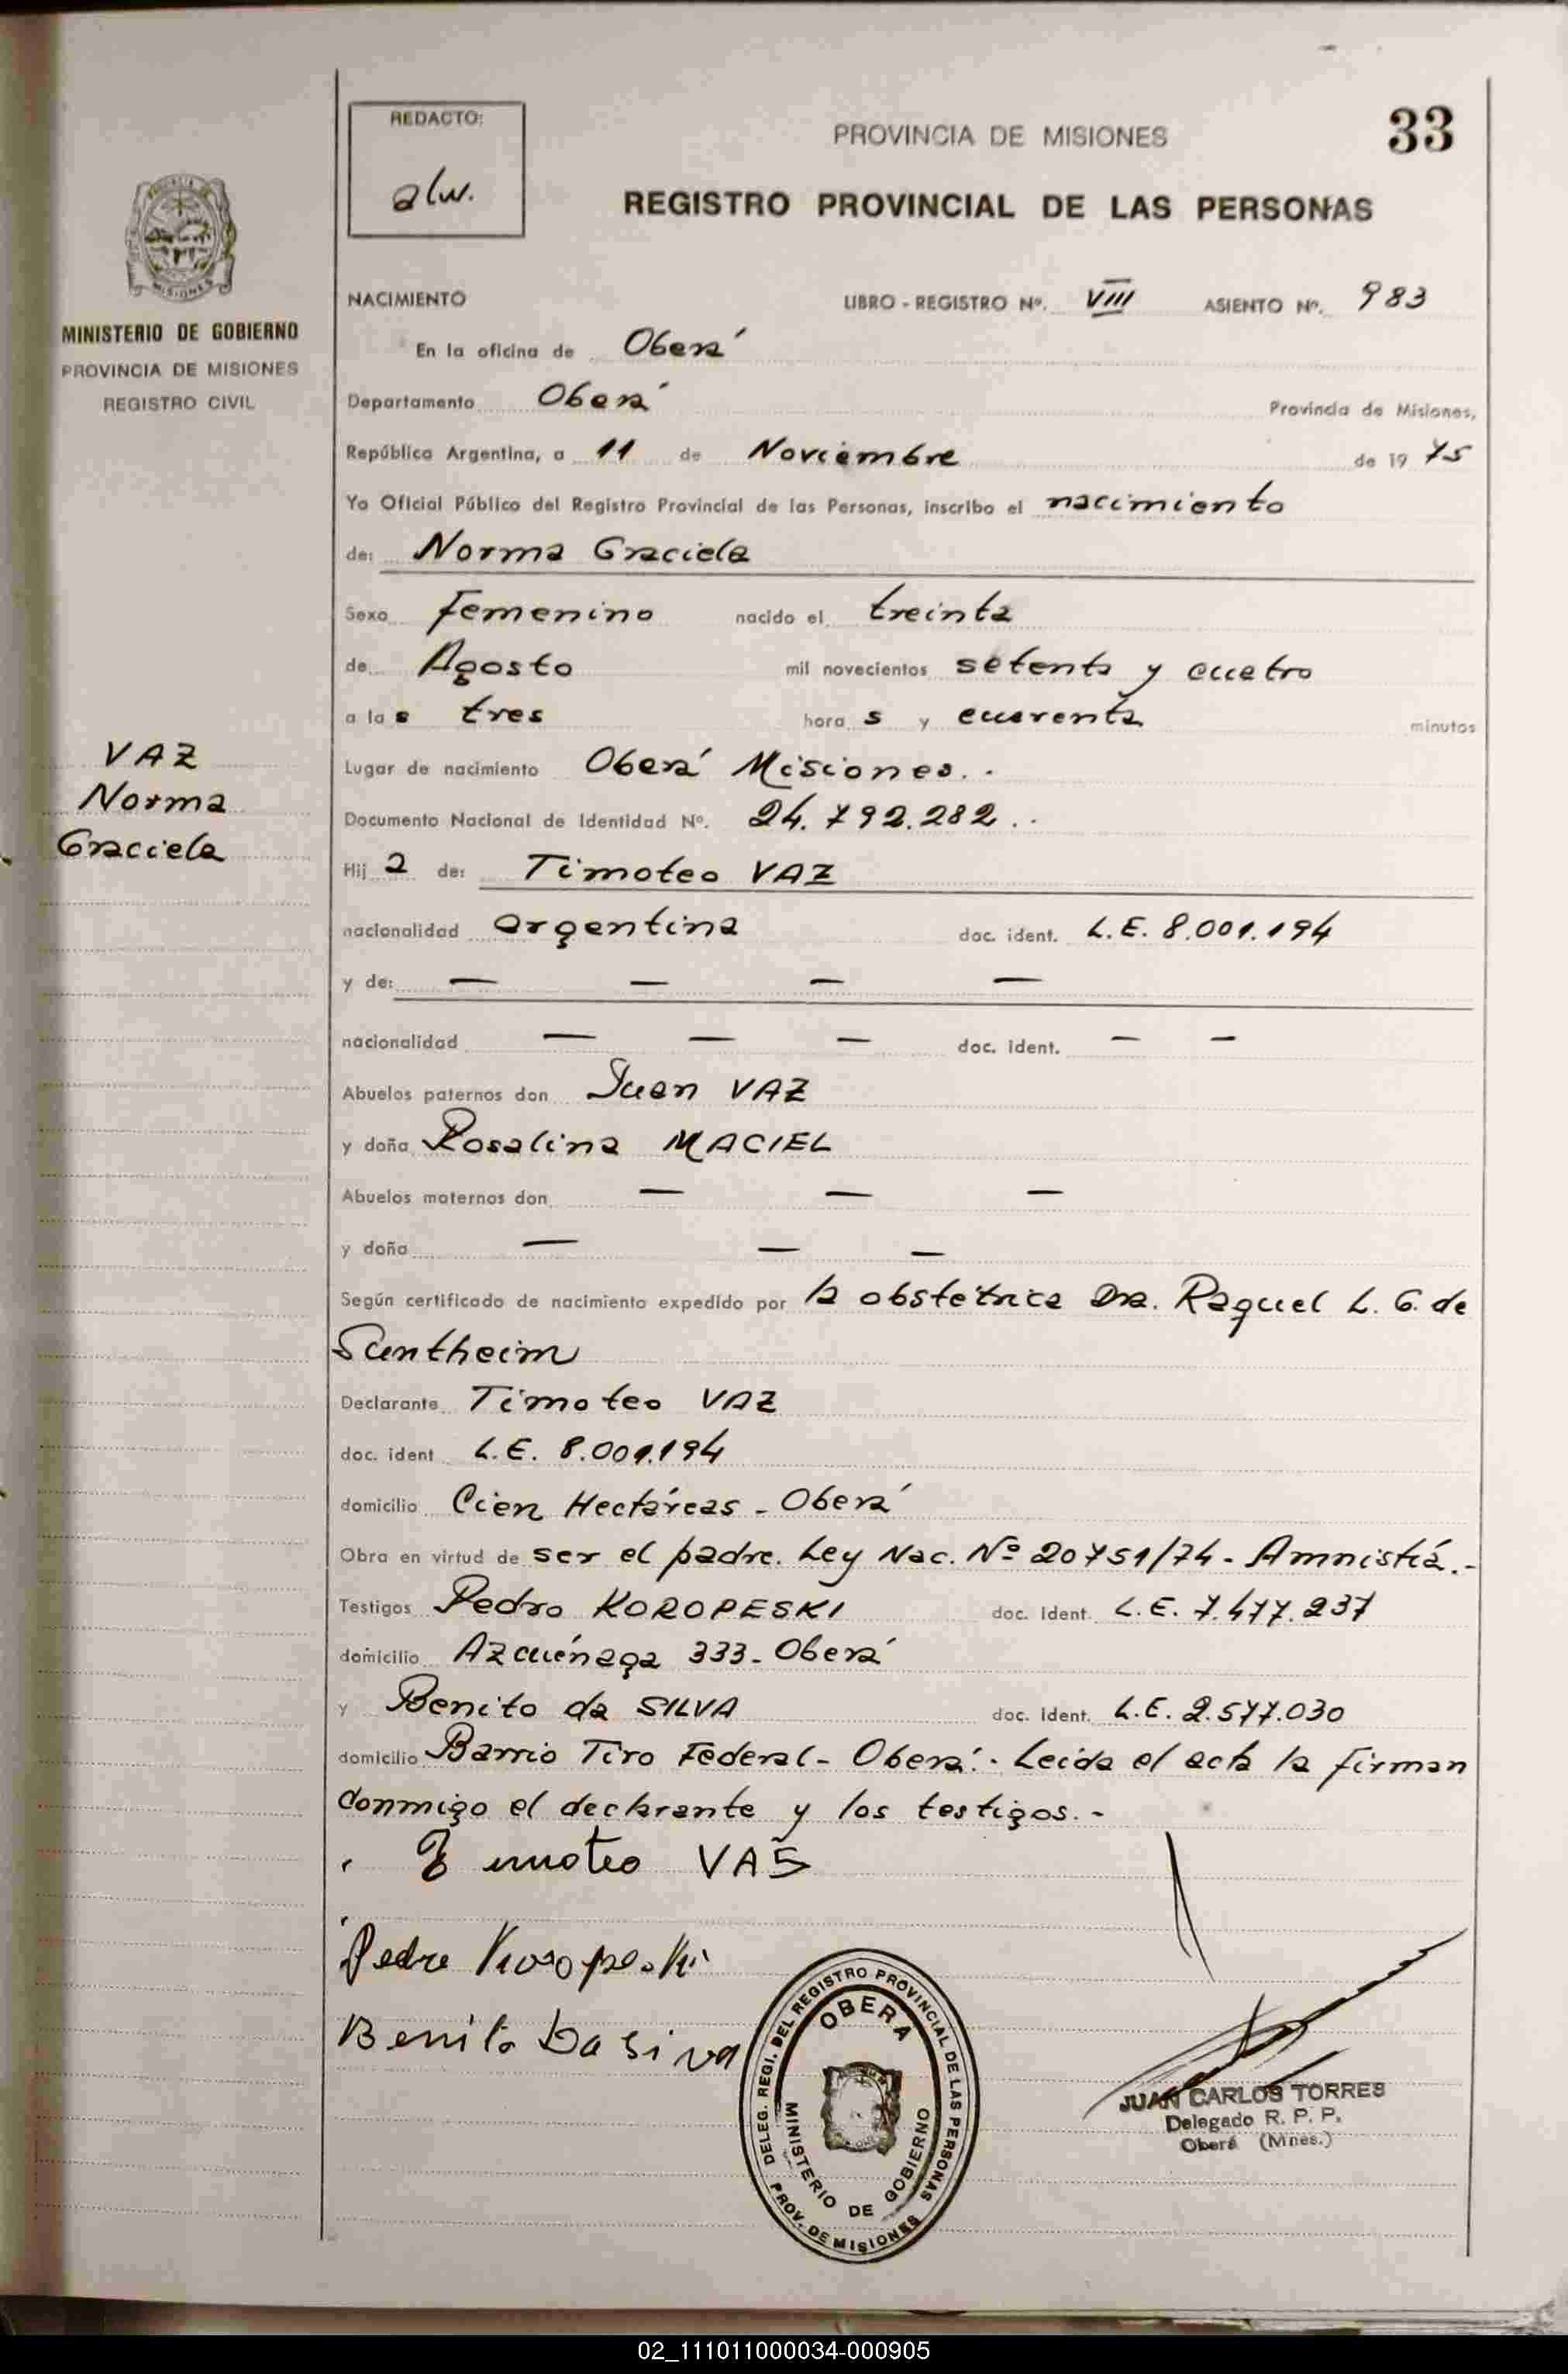 REDACTO:
alw.
PROVINCIA DE MISIONES
33
REGISTRO PROVINCIAL DE LAS PERSONAS
MISIONES
MINISTERIO DE GOBIERNO
PROVINCIA DE MISIONES
REGISTRO CIVIL
NACIMIENTO LIBRO - REGISTRO Nº. VIII ASIENTO Nº. 983
En la oficina de Oberá
Departamento Oberá Provincia de Misiones,
República Argentina, a 11 de Noviembre de 19 75
Yo Oficial Público del Registro Provincial de las Personas, inscribo el nacimiento
de: Norma Graciela
Sexo Femenino nacido el treinta
de Agosto mil novecientos setenta y cuatro
a las tres horas y cuarenta minutos
VAZ
Norma
Graciela
Lugar de nacimiento Oberá Misiones. .
Documento Nacional de Identidad Nº. 24.792.282 . .
Hija de: Timoteo VAZ
nacionalidad argentina doc. ident. L.E. 8.001.194
y de: — — — —
nacionalidad — — — doc. ident. — —
Abuelos paternos don Juan VAZ
y doña Rosalina MACIEL
Abuelos maternos don — — —
y doña — — —
Según certificado de nacimiento expedido por la obstétrica Dra. Raquel L. G. de
Suntheim
Declarante Timoteo VAZ
doc. ident L.E. 8.001.194
domicilio Cien Hectáreas - Oberá
Obra en virtud de ser el padre. Ley Nac. Nº 20751/74 - Amnistiá.-
Testigos Pedro KOROPESKI doc. ident. L.E. 7.477.237
domicilio Azcuénaga 333 - Oberá
y Benito da SILVA doc. ident. L.E. 2.577.030
domicilio Barrio Tiro Federal - Oberá. - Leida el acta la firman
conmigo el declarante y los testigos. -
Timoteo VAS
Pedro Koropeski
Benito Da Silva
DELEG. REGI. DEL REGISTRO PROVINCIAL DE LAS PERSONAS
OBERA
MINISTERIO DE GOBIERNO
PROV. DE MISIONES
JUAN CARLOS TORRES
Delegado R. P. P.
Oberá (Mnes.)
02_111011000034-000905